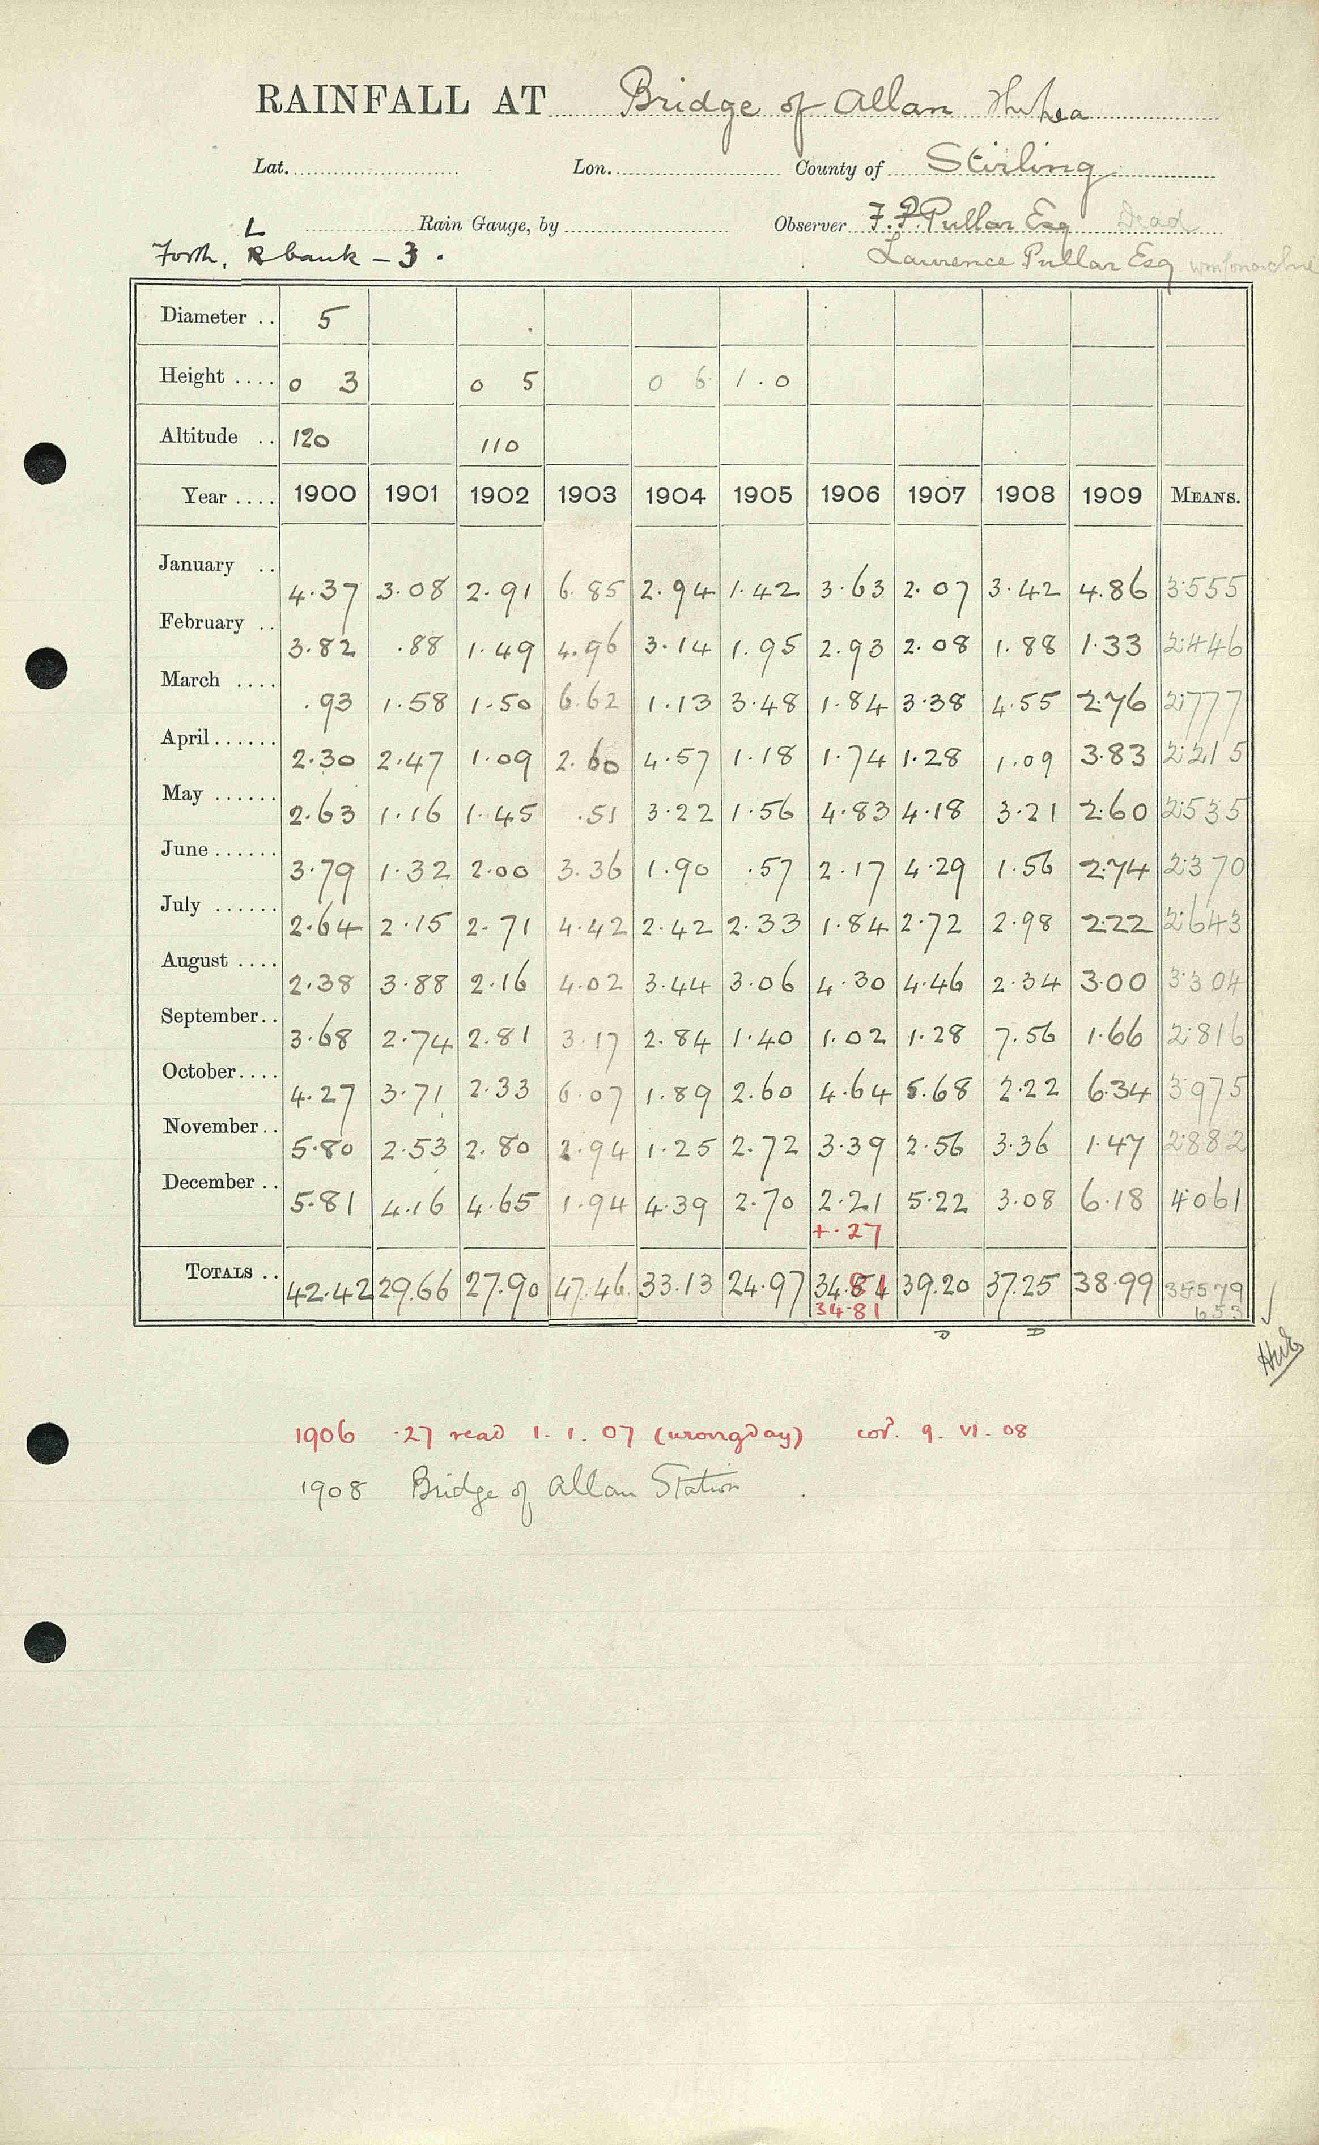 RAINFALL AT Bridge of Allan
Lat. Lon. County of Stirling
Rain Gauge, by Observer F. P. Pullar Esq Dead
Forth, L R bank - 3. Lawrence Pullar Esq
Diameter .. 5
Height .... 0 3 0 5 0 6 1.0
Altitude .. 120 110
Year .... 1900 1901 1902 1903 1904 1905 1906 1907 1908 1909 MEANS.
January .. 4.37 3.08 2.91 6.85 2.94 1.42 3.63 2.07 3.42 4.86 3.555
February .. 3.82 .88 1.49 4.96 3.14 1.95 2.93 2.08 1.88 1.33 2.446
March .... .93 1.58 1.50 6.62 1.13 3.48 1.84 3.38 4.55 2.76 2.777
April...... 2.30 2.47 1.09 2.60 4.57 1.18 1.74 1.28 1.09 3.83 2.215
May ...... 2.63 1.16 1.45 .51 3.22 1.56 4.83 4.18 3.21 2.60 2.535
June...... 3.79 1.32 2.00 3.36 1.90 .57 2.17 4.29 1.56 2.74 2.370
July ...... 2.64 2.15 2.71 4.42 2.42 2.33 1.84 2.72 2.98 2.22 2.643
August .... 2.38 3.88 2.16 4.02 3.44 3.06 4.30 4.46 2.34 3.00 3.304
September.. 3.68 2.74 2.81 3.17 2.84 1.40 1.02 1.28 7.56 1.66 2.816
October.... 4.27 3.71 2.33 6.07 1.89 2.60 4.64 5.68 2.22 6.34 3.975
November.. 5.80 2.53 2.80 2.94 1.25 2.72 3.39 2.56 3.36 1.47 2.882
December .. 5.81 4.16 4.65 1.94 4.39 2.70 2.21 5.22 3.08 6.18 4.061
+.27
TOTALS .. 42.42 29.66 27.90 47.46 33.13 24.97 34.54 39.20 37.25 38.99 35579
34.81 653
D D
1906 .27 read 1.1.07 (wrong day) cor^d. 9.VI.08
1908 Bridge of Allan Station